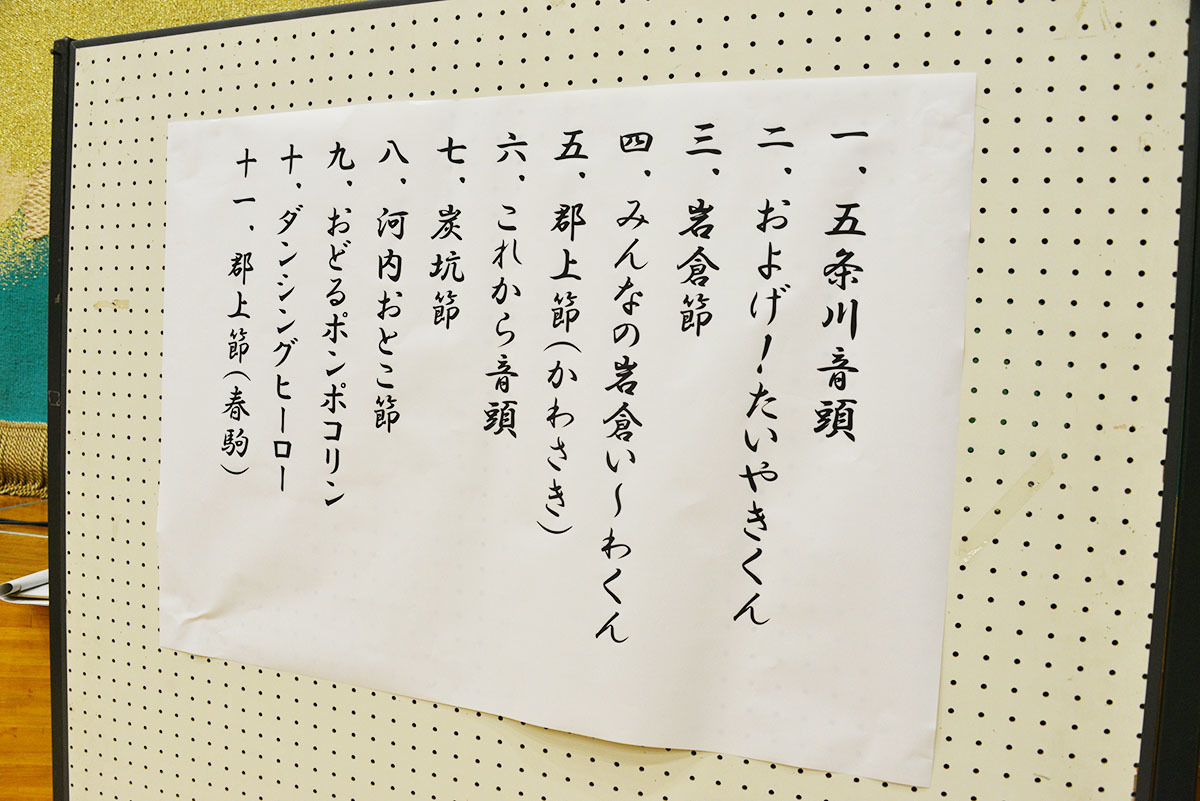 一、五条川音頭
二、およげ！たいやきくん
三、岩倉節
四、みんなの岩倉い～わくん
五、郡上節（かわさき）
六、これから音頭
七、炭坑節
八、河内おとこ節
九、おどるポンポコリン
十、ダンシングヒーロー
十一、郡上節（春駒）